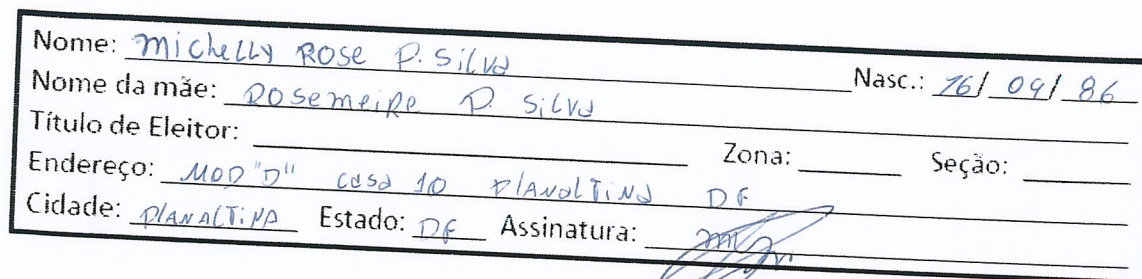 Nome: Michelly Rose P. Silva Nasc.: 16/ 09/ 86
Nome da mãe: Rosemeire P. Silva
Título de Eleitor: Zona: Seção:
Endereço: MOD "D" casa 10 Planaltina DF
Cidade: Planaltina Estado: DF Assinatura: